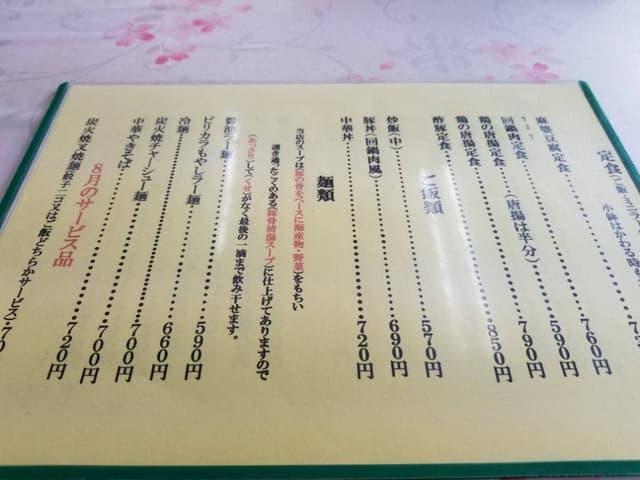 定食(ご飯・ミニラ
小鉢はかわる時
麻婆豆腐定食………73
回鍋肉定食………760円
鶏の唐揚定食 (唐揚は半分)………590円
鶏の唐揚定食………790円
酢豚定食………850円
ご飯類
炒飯(中)………570円
豚丼(回鍋肉風)………690円
中華丼………720円
麺類
当店のスープは(豚の骨をベースに海産物・野菜)をもちい
透き通ったこくのある(豚骨清湯スープ)に仕上げてありますので
(あっさり)してくせ)がなく最後の一滴まで飲み干せます。
醤油ラー麺………590円
ピリカラもやしラー麺………660円
冷麺………700円
炭火焼チャーシュー麺………700円
中華やきそば………720円
8月のサービス品
炭火焼叉焼麺(餃子二コ又はご飯どちらかサービス)・70